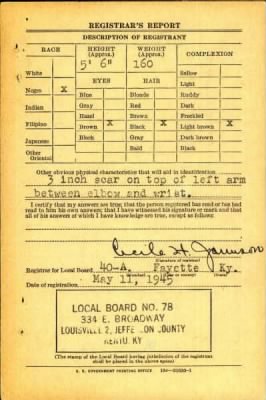 REGISTRAR'S REPORT
DESCRIPTION OF REGISTRANT
RACE HEIGHT (Approx.) WEIGHT (Approx.) COMPLEXION
5' 6" 160
White Sallow
EYES HAIR Light
Negro X Blue Blonde Ruddy
Indian Gray Red Dark
Hazel Brown Freckled
Filipino Brown X Black X Light brown X
Japanese Black Gray Dark brown
Other Oriental Bald Black
Other obvious physical characteristics that will aid in identification
3 inch scar on top of left arm
between elbow and wrist.
I certify that my answers are true; that the person registered has read or has had
read to him his own answers; that I have witnessed his signature or mark and that
all of his answers of which I have knowledge are true, except as follows:
(Signature of registrar)
Registrar for Local Board 40-A. Fayette Ky.
Date of registration May 11, 1945
LOCAL BOARD NO. 78
334 E. BROADWAY
LOUISVILLE 2, JEFFE ON COUNTY
KENTU KY
(The stamp of the Local Board having jurisdiction of the registrant
shall be placed in the above space.)
U. S. GOVERNMENT PRINTING OFFICE